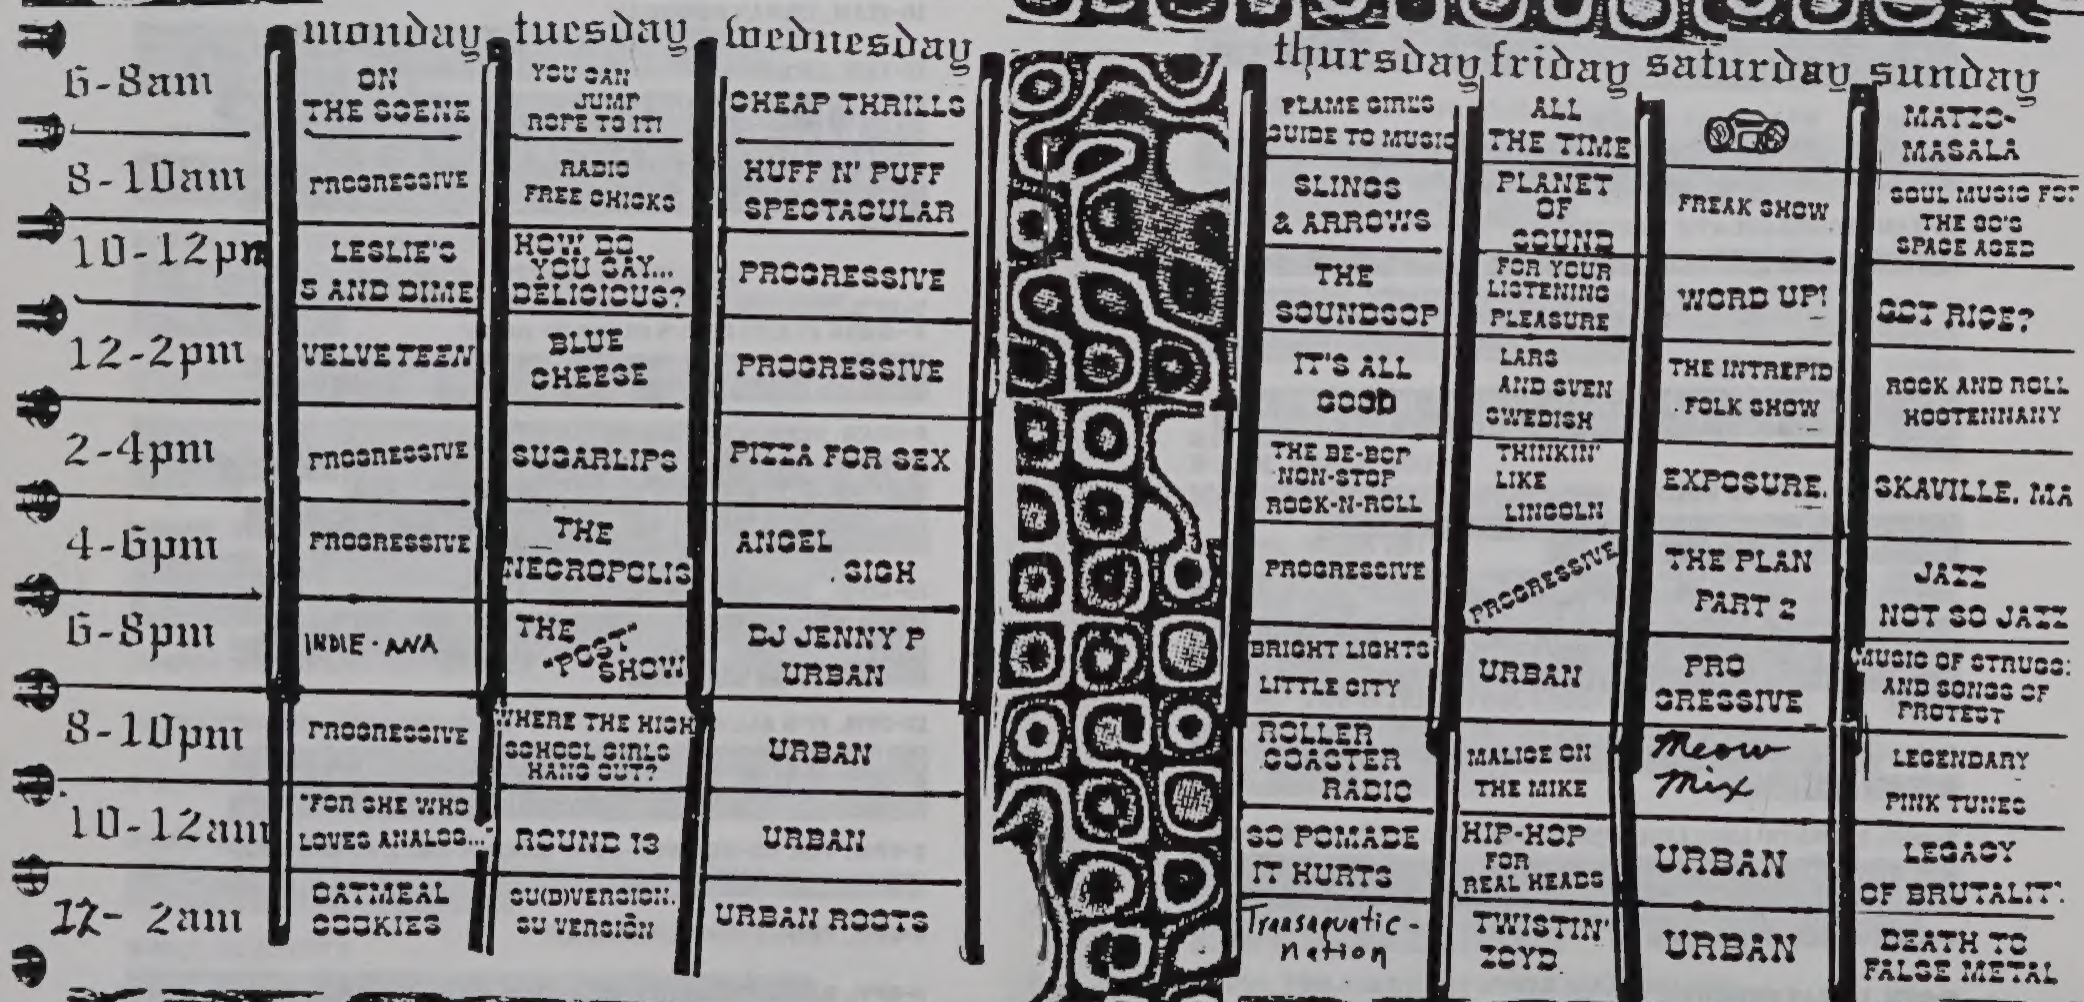 monday tuesday wednesday thursday friday saturday sunday
6-8am
ON
THE SCENE
YOU CAN
JUMP
ROPE TO IT!
CHEAP THRILLS
FLAME GIRL'S
GUIDE TO MUSIC
ALL
THE TIME
MATZO-
MASALA
8-10am
PROGRESSIVE
RADIO
FREE CHICKS
HUFF N' PUFF
SPECTACULAR
SLINGS
& ARROWS
PLANET
OF
SOUND
FREAK SHOW
SOUL MUSIC FOR
THE 90'S
SPACE AGED
10-12pm
LESLIE'S
5 AND DIME
HOW DO
YOU SAY...
DELICIOUS?
PROGRESSIVE
THE
SOUNDGOP
FOR YOUR
LISTENING
PLEASURE
WORD UP!
GOT RICE?
12-2pm
VELVETEEN
BLUE
CHEESE
PROGRESSIVE
IT'S ALL
GOOD
LARS
AND SVEN
SWEDISH
THE INTREPID
FOLK SHOW
ROCK AND ROLL
HOOTENNANY
2-4pm
PROGRESSIVE
SUGARLIPS
PIZZA FOR SEX
THE BE-BOP
NON-STOP
ROCK-N-ROLL
THINKIN'
LIKE
LINCOLN
EXPOSURE.
SKAVILLE. MA
4-6pm
PROGRESSIVE
THE
NECROPOLIS
ANGEL
SIGH
PROGRESSIVE
PROGRESSIVE
THE PLAN
PART 2
JAZZ
NOT SO JAZZ
6-8pm
INDIE-ANA
THE
"POST"
SHOW
DJ JENNY P
URBAN
BRIGHT LIGHTS
LITTLE CITY
URBAN
PRO
GRESSIVE
MUSIC OF STRUGG:
AND SONGS OF
PROTEST
8-10pm
PROGRESSIVE
WHERE THE HIGH
SCHOOL GIRLS
HANG OUT?
URBAN
ROLLER
COASTER
RADIO
MALICE ON
THE MIKE
Meow
Mix
LEGENDARY
PINK TUNES
10-12am
"FOR SHE WHO
LOVES ANALOG..."
ROUND 13
URBAN
SO POMADE
IT HURTS
HIP-HOP
FOR
REAL HEADS
URBAN
LEGACY
OF BRUTALIT
12- 2am
OATMEAL
COOKIES
SU(B)VERSION.
SU VERSIÓN
URBAN ROOTS
Transaquatic-
nation
TWISTIN'
ZOYD
URBAN
DEATH TO
FALSE METAL